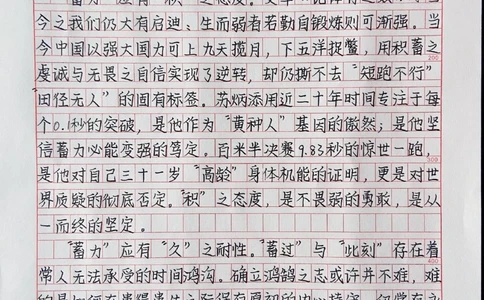 今之我们仍大有启迪、生而弱者若勤自锻炼则可渐强。当
今中国以强大国力可上九天揽月，下五洋捉鳖，用积蓄之
虔诚与无畏之自信实现了逆转，却仍撕不去“短跑不行”
“田径无人”的固有标签。苏炳添用近二十年时间专注于每
个0.1秒的突破，是他作为“黄种人”基因的傲然；是他坚
信蓄力必能变强的笃定。百米半决赛9.83秒的惊世一跑，
是他对自己三十一岁“高龄”身体机能的证明，更是对世
界质疑的彻底否定。“积”之态度，是不畏弱的勇敢，是从
一而终的坚定。
“蓄力”应有“久”之耐性。“蓄过”与“此刻”存在着
常人无法承受的时间鸿沟。确立鸿鹄之志或许并不难，难
200
300
400